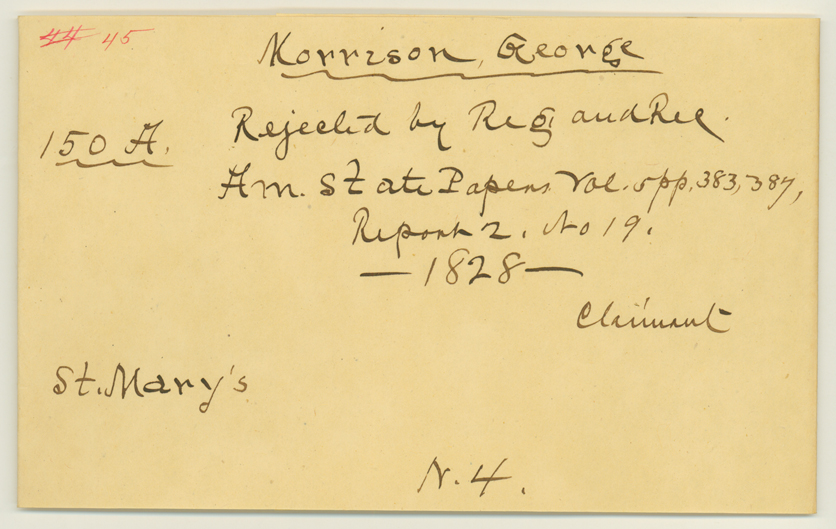 44 45
Morrison, George
150 A. Rejected by Reg and Rec.
Am. State Papers Vol. 5 pp. 383, 387,
Report 2. No 19.
— 1828 —
Claimant
St. Mary's
N. 4.